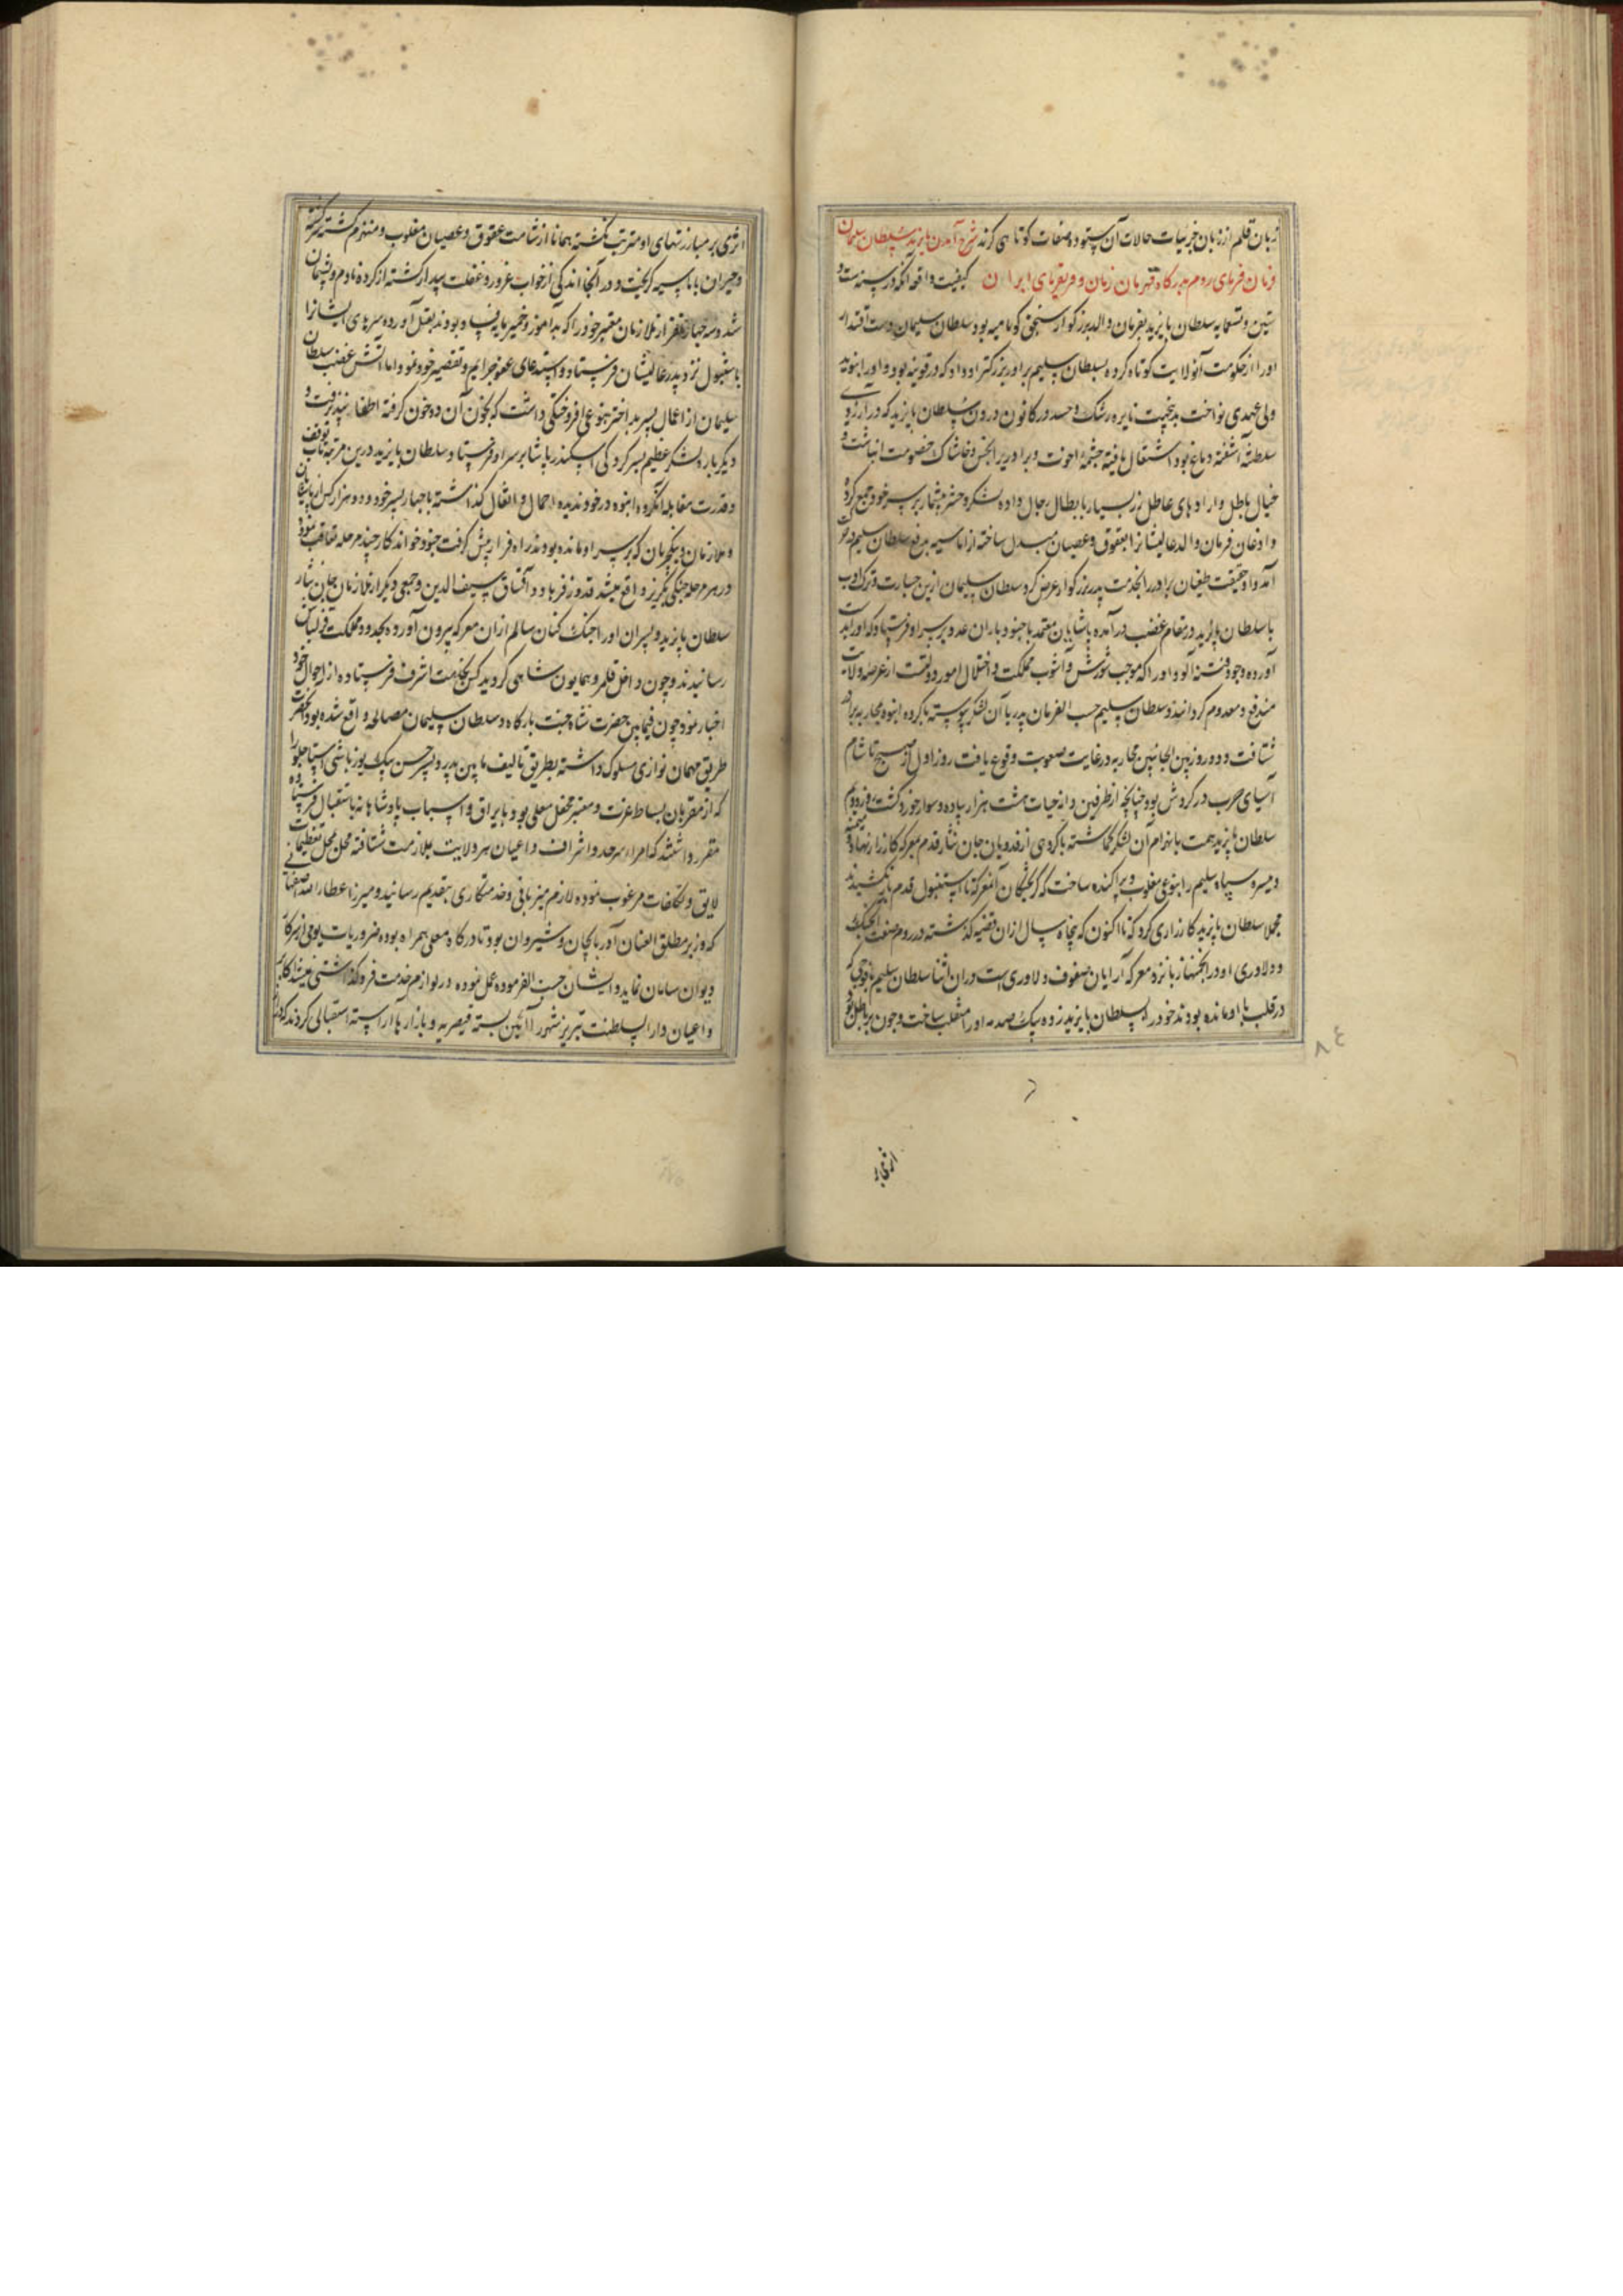 زبان قلم از زبان جزئیات حالات آن ستوده صفات کوتاهی کرند شرح آمدن بایزید سلطان سلیمان
فرمان فرمای روم بدرگاه قهرمان زمان و فریفرمای ایران کیفیت واقعه آنکه در سنه ست و
ستین و تسعمایه سلطان بایزید بفرمان والد بزرگوار سنجق کوتاهیه بود سلطان سلیمان دست اقتدار
او را از حکومت آنولایت کوتاه کرده بسلطان سلیم برادر بزرگتر او داد که در قونیه بود و او را بنوید
ولی عهدی نواخت بدین جهت نایره رشک و حسد در کانون درون سلطان بایزید که در آرزوی
سلطنة آشفته دماغ بود اشتعال یافته چشمه اخوت و برادری را بخس و خاشاک خصومت انباشت و
خیال باطل و ارادهای عاطل زر بسیار بابطال رجال داده لشکر و حشر بیشمار بر سر خود جمع کرده
و اذعان فرمان والد عالیشانرا بعقوق و عصیان مبدل ساخته از اماسیه بدفع سلطان سلیم در حرکت
آمد و او حقیقت طغیان برادر را بخدمت پدر بزرگوار عرض کرد سلطان سلیمان ازین جسارت و ترک ادب
با سلطان بایزید در مقام غضب درآمده پاشایان معتمد با جنود باران عدد بر سر او فرستاد که او را بدست
آورده وجود فتنه آلود او را که موجب شورش و آشوب مملکت و اختلال امور دولتست از عرصه ولایت
مندفع و معدوم گردانیدند و سلطان سلیم حسب الفرمان پدر با آن لشکر پیوسته با گروه انبوه بمحاربه برادر
شتافت و دو روز بین الجانبین محاربه در غایت صعوبت وقوع یافت روز اول از صبح تا شام
آسیای حرب در گردش بود چنانچه از طرفین دانه حیات هشت هزار پیاده و سوار خورد گشت روز دویم
سلطان بایزید همت بانهزام آن لشکر گماشته با گروهی از فدویان جان نثار قدم بمعرکه کارزار نهاد و میمنه
و میسره سپاه سلیم را بنوعی مغلوب و پراکنده ساخت که گریختگان آنمعرکه تا استنبول قدم باز نکشیدند
مجملا سلطان بایزید کارزاری کرد که تا اکنون که پنجاه سال از آن قضیه گذشته در روم صفت آنجنگ
و دلاوری او در انجمنها زبانزد معرکه آرایان صفوف دلاوری است در آن اثنا سلطان سلیم با فوجی که
در قلب با او مانده بودند خود را بسلطان بایزید زده بیک صدمه او را منقلب ساخت و چون بر باطل بود
اثری بر
اثری بر مبارزتهای او مترتب نگشته همانا از شامت عقوق و عصیان مغلوب و منهزم گشته سرگشته
و حیران باماسیه گریخت و در آنجا اندکی از خواب غرور و غفلت بیدار گشته از کرده نادم و پشیمان
شد و سه چهار نفر از ملازمان معتبر خود را که بدآموز و خمیر مایه فساد بودند بقتل آورده سرهای ایشانرا
باستنبول نزد پدر عالیشان فرستاد و استدعای عفو جرایم و تقصیر خود نمود اما آتش غضب سلطان
سلیمان از اعمال پسر بد اختر بنوعی افروختگی داشت که بخون آن ده خون گرفته اطفا نپذیرفت و
دیگر باره لشکر عظیم بسرکردگی اسکندر پاشا بر سر او فرستاد و سلطان بایزید درین مرتبه تاب توقف
و قدرت مقابله آنگروه انبوه در خود ندیده احمال و اثقال گذاشته با چهار پسر خود و دو هزار کس از پاشایان
و ملازمان و ینکچریان که بر سر او مانده بودند راه فرار پیش گرفت جنود خواندکار چند مرحله تعاقب نمود
در هر مرحله جنگی بگریز واقع میشد قدوز فرهاد و آقساق سیف الدین و جمعی دیگر از ملازمان جان نثار
سلطان بایزید و پسران او را جنگ کنان سالم از آن معرکه بیرون آورده بحدود مملکت قزلباش
رسانیدند و چون داخل قلمرو همایون شاهی گردید کس بخدمت اشرف فرستاده از احوال خود
اخبار نمود چون فیمابین حضرت شاه جنت بارگاه و سلطان سلیمان مصالحه واقع شده بود آنحضرت
طریق مهمان نوازی مسلوک داشته بطریق تألیف مابین پدر و پسر حسن بیک یوزباشی استاجلو را
که از مقربان بساط عزت و معتبر محفل معلی بود با یراق و اسباب پادشاهانه باستقبال فرستاده
مقرر داشتند که امراء سرحد و اشراف و اعیان هر ولایت بملازمت شتافته محل بمحل تعظیمات
لایق و تکلفات مرغوب نموده لازم میزبانی و خدمتکاری بتقدیم رسانند و میرزا عطاء الله اصفهانی
که وزیر مطلق العنان آذربایجان و شیروان بود تا درگاه معلی همراه بوده ضروریات یومی از سرکار
دیوان سامان نماید و ایشان حسب الفرموده عمل نموده در لوازم خدمت فروگذاشتی نمینمودند اکابر
و اعیان دار السلطنت تبریز شهر را آئین بسته قیصریه و بازارها آراسته استقبالی کردند که دیده
٨٤